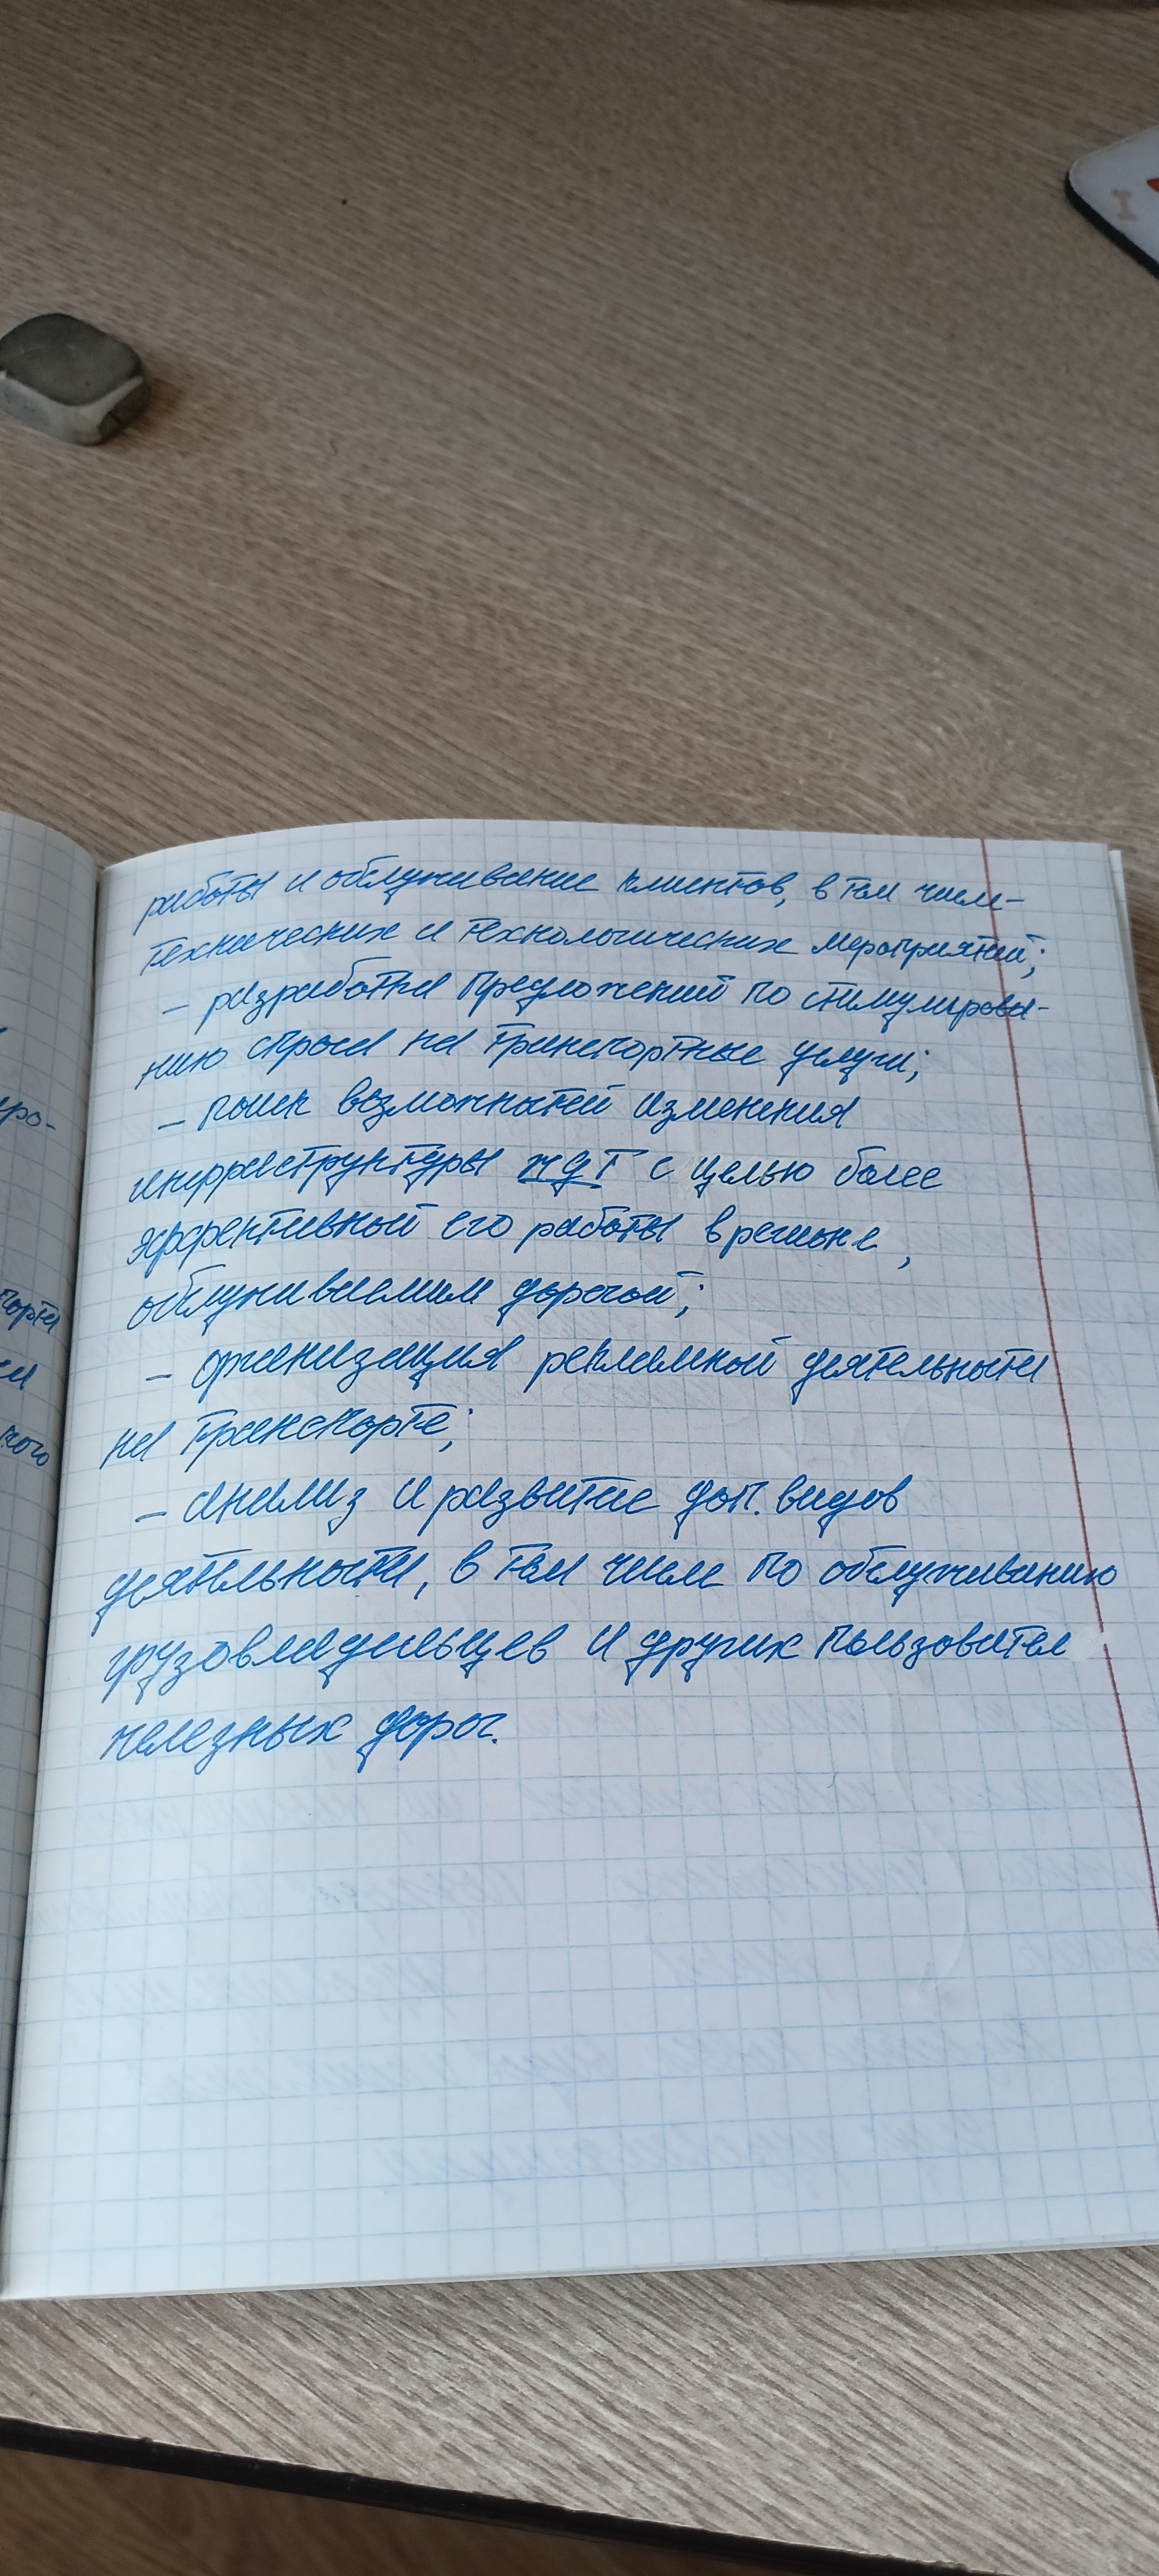 работы и обслуживание клиентов, в том числе
технических и технологических мероприятий;
– разработка предложений по стимулирова-
нию спроса на транспортные услуги;
– поиск возможностей изменения
инфраструктуры ждт с целью более
эффективной его работы в регионе,
обслуживаемым дорогой;
– организация рекламной деятельности
на транспорте;
– анализ и развитие доп. видов
деятельности, в том числе по обслуживанию
грузовладельцев и других пользовател
железных дорог.